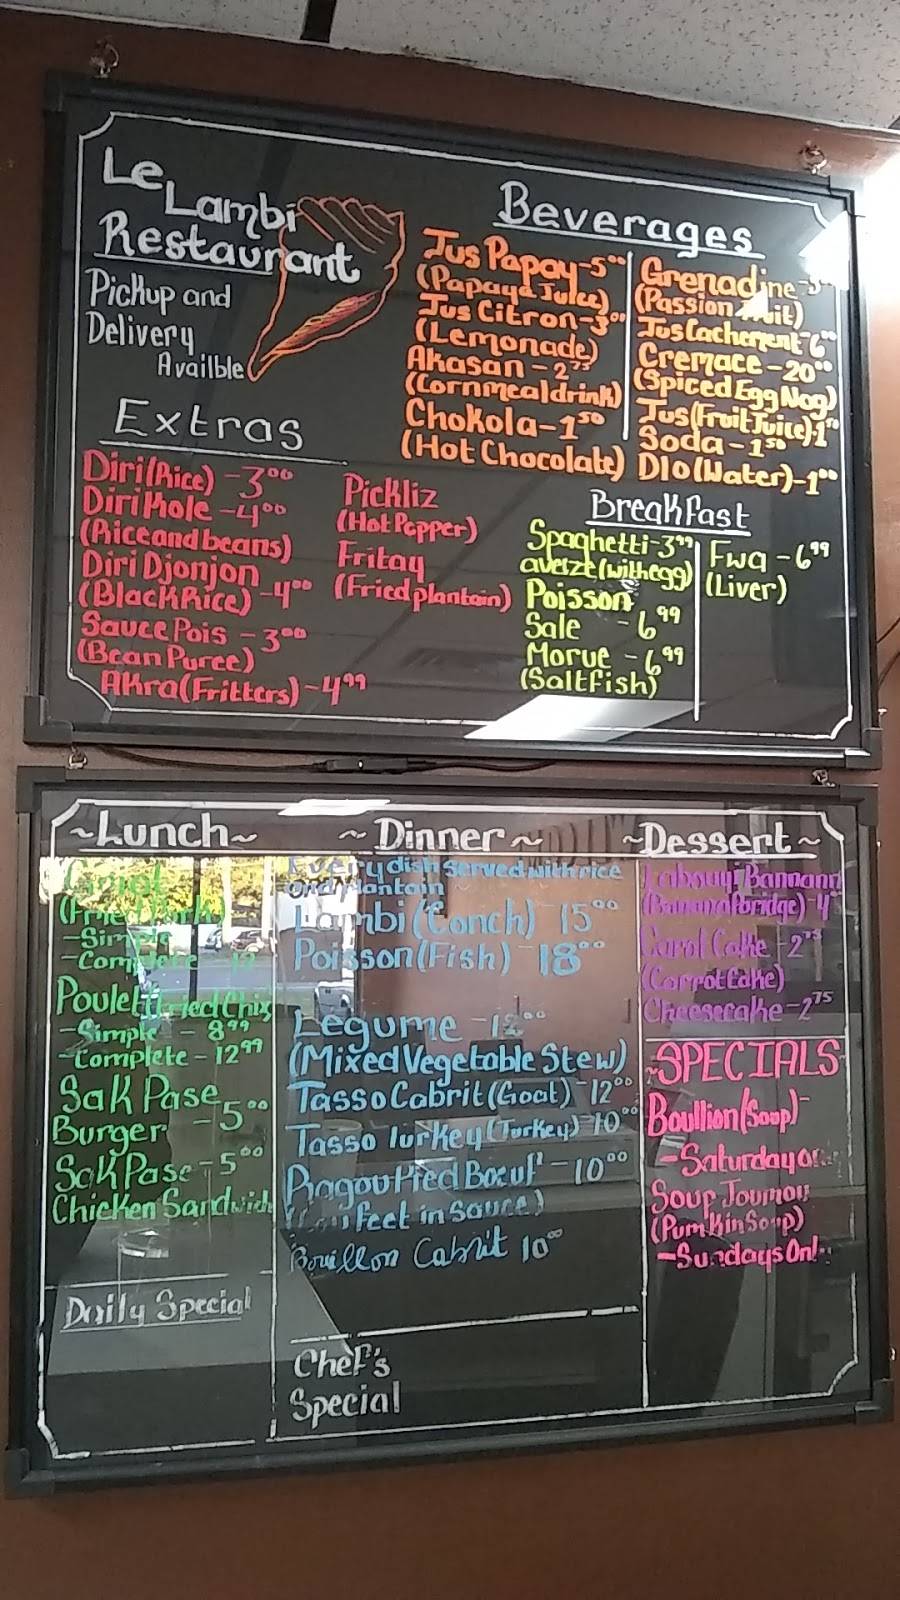 Le
Lambi
Restaurant
Pickup and
Delivery
Availble
Extras
Diri(Rice) - 3⁰⁰
Diri Kole - 4⁰⁰
(Rice and beans)
Diri Djonjon
(Black Rice) - 4⁰⁰
Sauce Pois - 3⁰⁰
(Bean Puree)
Akra (Fritters) - 4⁹⁹
Pickliz
(Hot Pepper)
Fritay
(Fried plantain)
Beverages
Jus Papay - 5⁰⁰
(Papaya Juice)
Jus Citron - 3⁰⁰
(Lemonade)
Akasan - 2⁷⁵
(Cornmeal drink)
Chokola - 1⁵⁰
(Hot Chocolate)
Grenadine
(Passion Fruit)
Jus Cachement - 6⁰⁰
Cremace - 20⁰⁰
(Spiced Egg Nog)
Jus (Fruit Juice) -
Soda - 1⁵⁰
Dlo (Water) - 1⁰⁰
Breakfast
Spaghetti - 3⁹⁹
aveize (with egg)
Poisson
Sale - 6⁹⁹
Morue - 6⁹⁹
(Saltfish)
Fwa - 6⁹⁹
(Liver)
~Lunch~
Griot
(Fried Pork)
- Simple
- Complete - 12
Poulet (Fried Chix
- Simple - 8⁹⁹
- Complete - 12⁹⁹
Sak Pase
Burger - 5⁰⁰
Sak Pase - 5⁰⁰
Chicken Sandwich
Daily Special
~ Dinner ~
Every dish served with rice
and plantain
Lambi (Conch) - 15⁰⁰
Poisson (Fish) - 18⁰⁰
Legume - 12⁰⁰
(Mixed Vegetable Stew)
Tasso Cabrit (Goat) - 12⁰⁰
Tasso Turkey (Turkey) - 10⁰⁰
Ragou Pied Boeuf - 10⁰⁰
(Cow feet in Sauce)
Bouillon Cabrit 10⁰⁰
Chef's
Special
~Dessert~
Labouyi Bannann
(Banana Poridge) - 4
Carot Cake - 2⁷⁵
(Carrot Cake)
Cheesecake - 2⁷⁵
SPECIALS
Boullion (Soup) -
- Saturday
Soup Joumou
(Pumkin Soup)
- Sundays Only